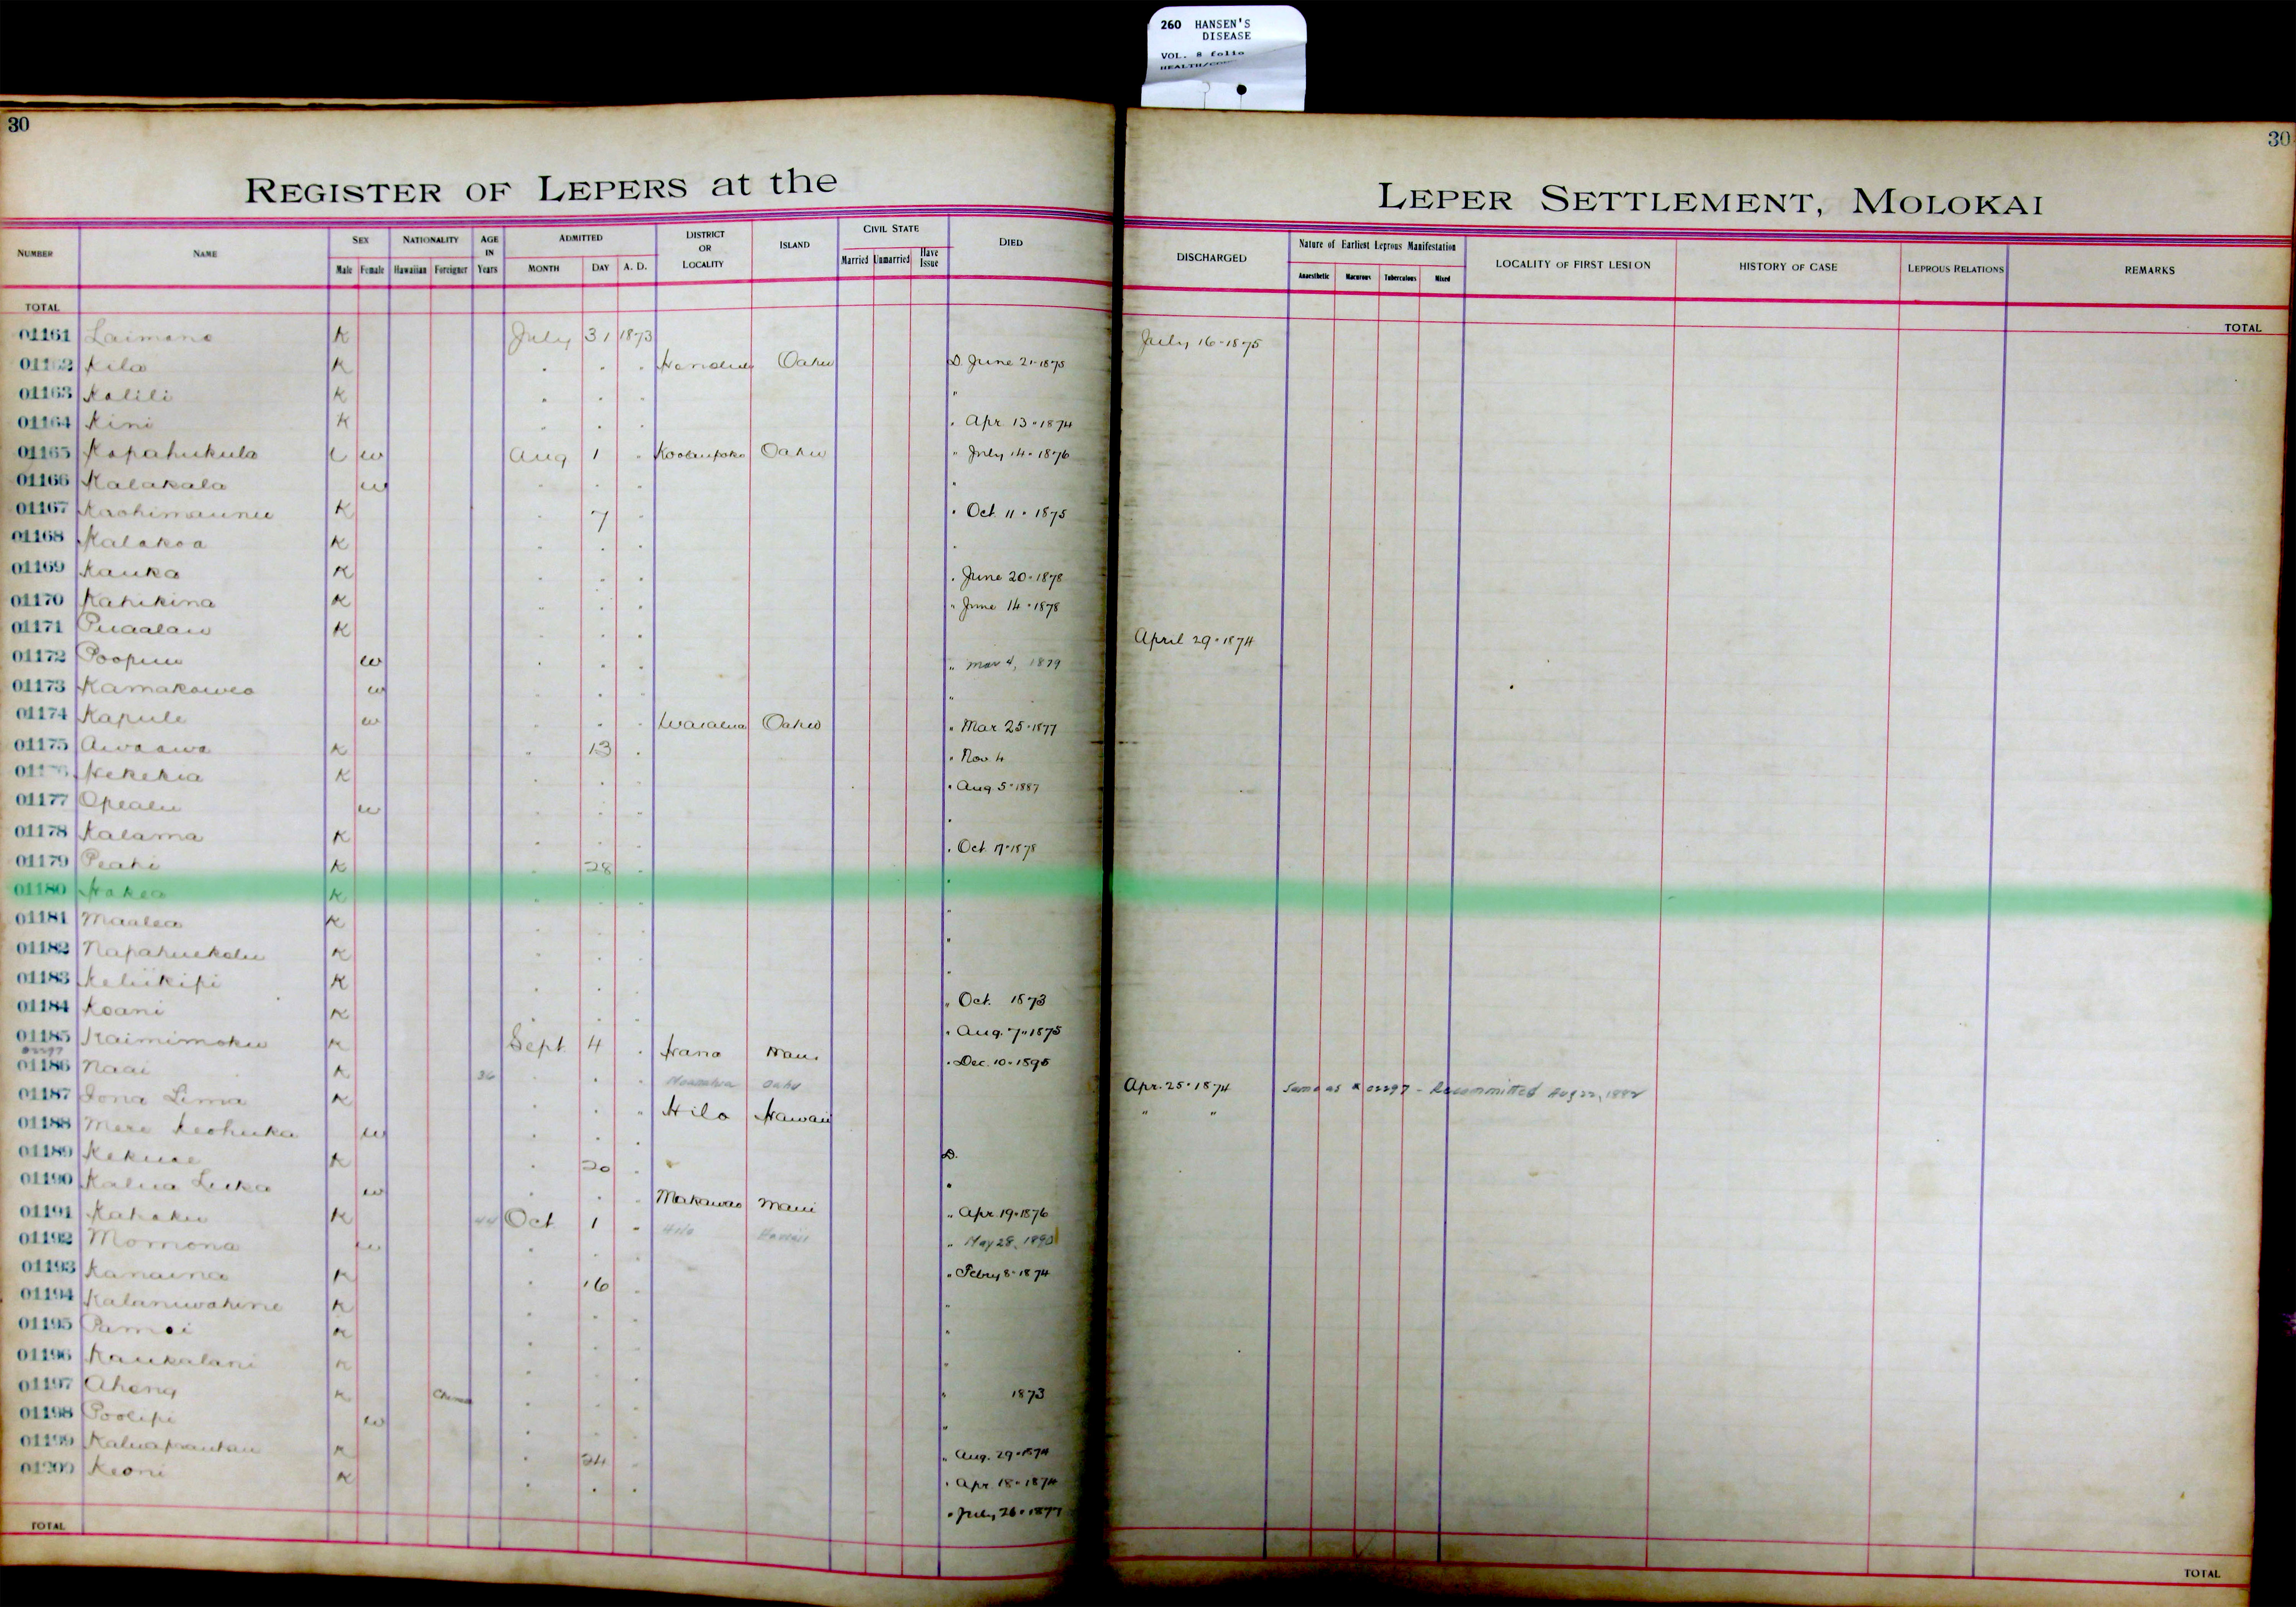 260 HANSEN'S
DISEASE
VOL. 8 folio
30
30
REGISTER OF LEPERS at the LEPER SETTLEMENT, MOLOKAI
NUMBER NAME SEX Male Female NATIONALITY Hawaiian Foreigner AGE IN Years ADMITTED MONTH DAY A. D. DISTRICT OR LOCALITY ISLAND CIVIL STATE Married Unmarried Have Issue DIED DISCHARGED Nature of Earliest Leprous Manifestation Anaesthetic Macurous Tuberculous Mixed LOCALITY OF FIRST LESION HISTORY OF CASE LEPROUS RELATIONS REMARKS
TOTAL TOTAL
01161 Laimana K July 31 1873 July 16-1875
Kila K " " " Honolulu Oahu D. June 21-1875
01163 Kalili K " " " "
01164 Kini K " " " " Apr. 13-1874
01165 Kapahukula w Aug 1 " Koolaupoko Oahu " July 14-1876
01166 Kalakala w " " " "
01167 Kaohimaunu K " 7 " " Oct. 11-1875
01168 Kalakoa K " " " "
01169 Kauka K " " " " June 20-1878
01170 Kahikina K " " " " June 14-1878
01171 Puaalau K " " " April 29-1874
01172 Poopuu w " " " " Mar 4, 1879
01173 Kamakawea w " " " "
01174 Kapule w " " " Waialua Oahu " Mar. 25-1877
01175 Awaawa K " 13 " " Nov. 4
Kekekia K " " " " Aug 5-1887
01177 Opealu w " " " "
01178 Kalama K " " " " Oct. 17-1878
01179 Peahi K " 28 " "
01180 Hakea K " " " "
01181 Maalea K " " " "
01182 Napahuekolu K " " " "
01183 Keliikipi K " " " " Oct. 1873
01184 Koani K " " " " Aug. 7-1875
01185 Kaimimoku K Sept. 4 " Hana Maui " Dec. 10-1895
01186 Naai K 36 " " " Oahu Apr. 25-1874 Same as # 02297 - Recommitted Aug 22, 1882
01187 Iona Lima K " " " Hilo Hawaii " "
01188 Mere Keohuka w " " "
01189 Kekuae K " 20 " D.
01190 Kalua Luka w " " " Makawao Maui " Apr. 19-1876
01191 Kahaku K 44 Oct 1 " Hilo Hawaii " May 28, 1890
01192 Momona w " " " " Febry 8-1874
01193 Kanaina K " 16 " "
01194 Kalaniwahine K " " " "
01195 K " " " "
01196 Kaukalani K " " " 1873
01197 Ahong K " " "
01198 Poolipi w " " " " Aug. 29-1874
01199 K " 24 " " Apr. 18-1874
01200 Keoni K " " " " July 26-1877
TOTAL TOTAL